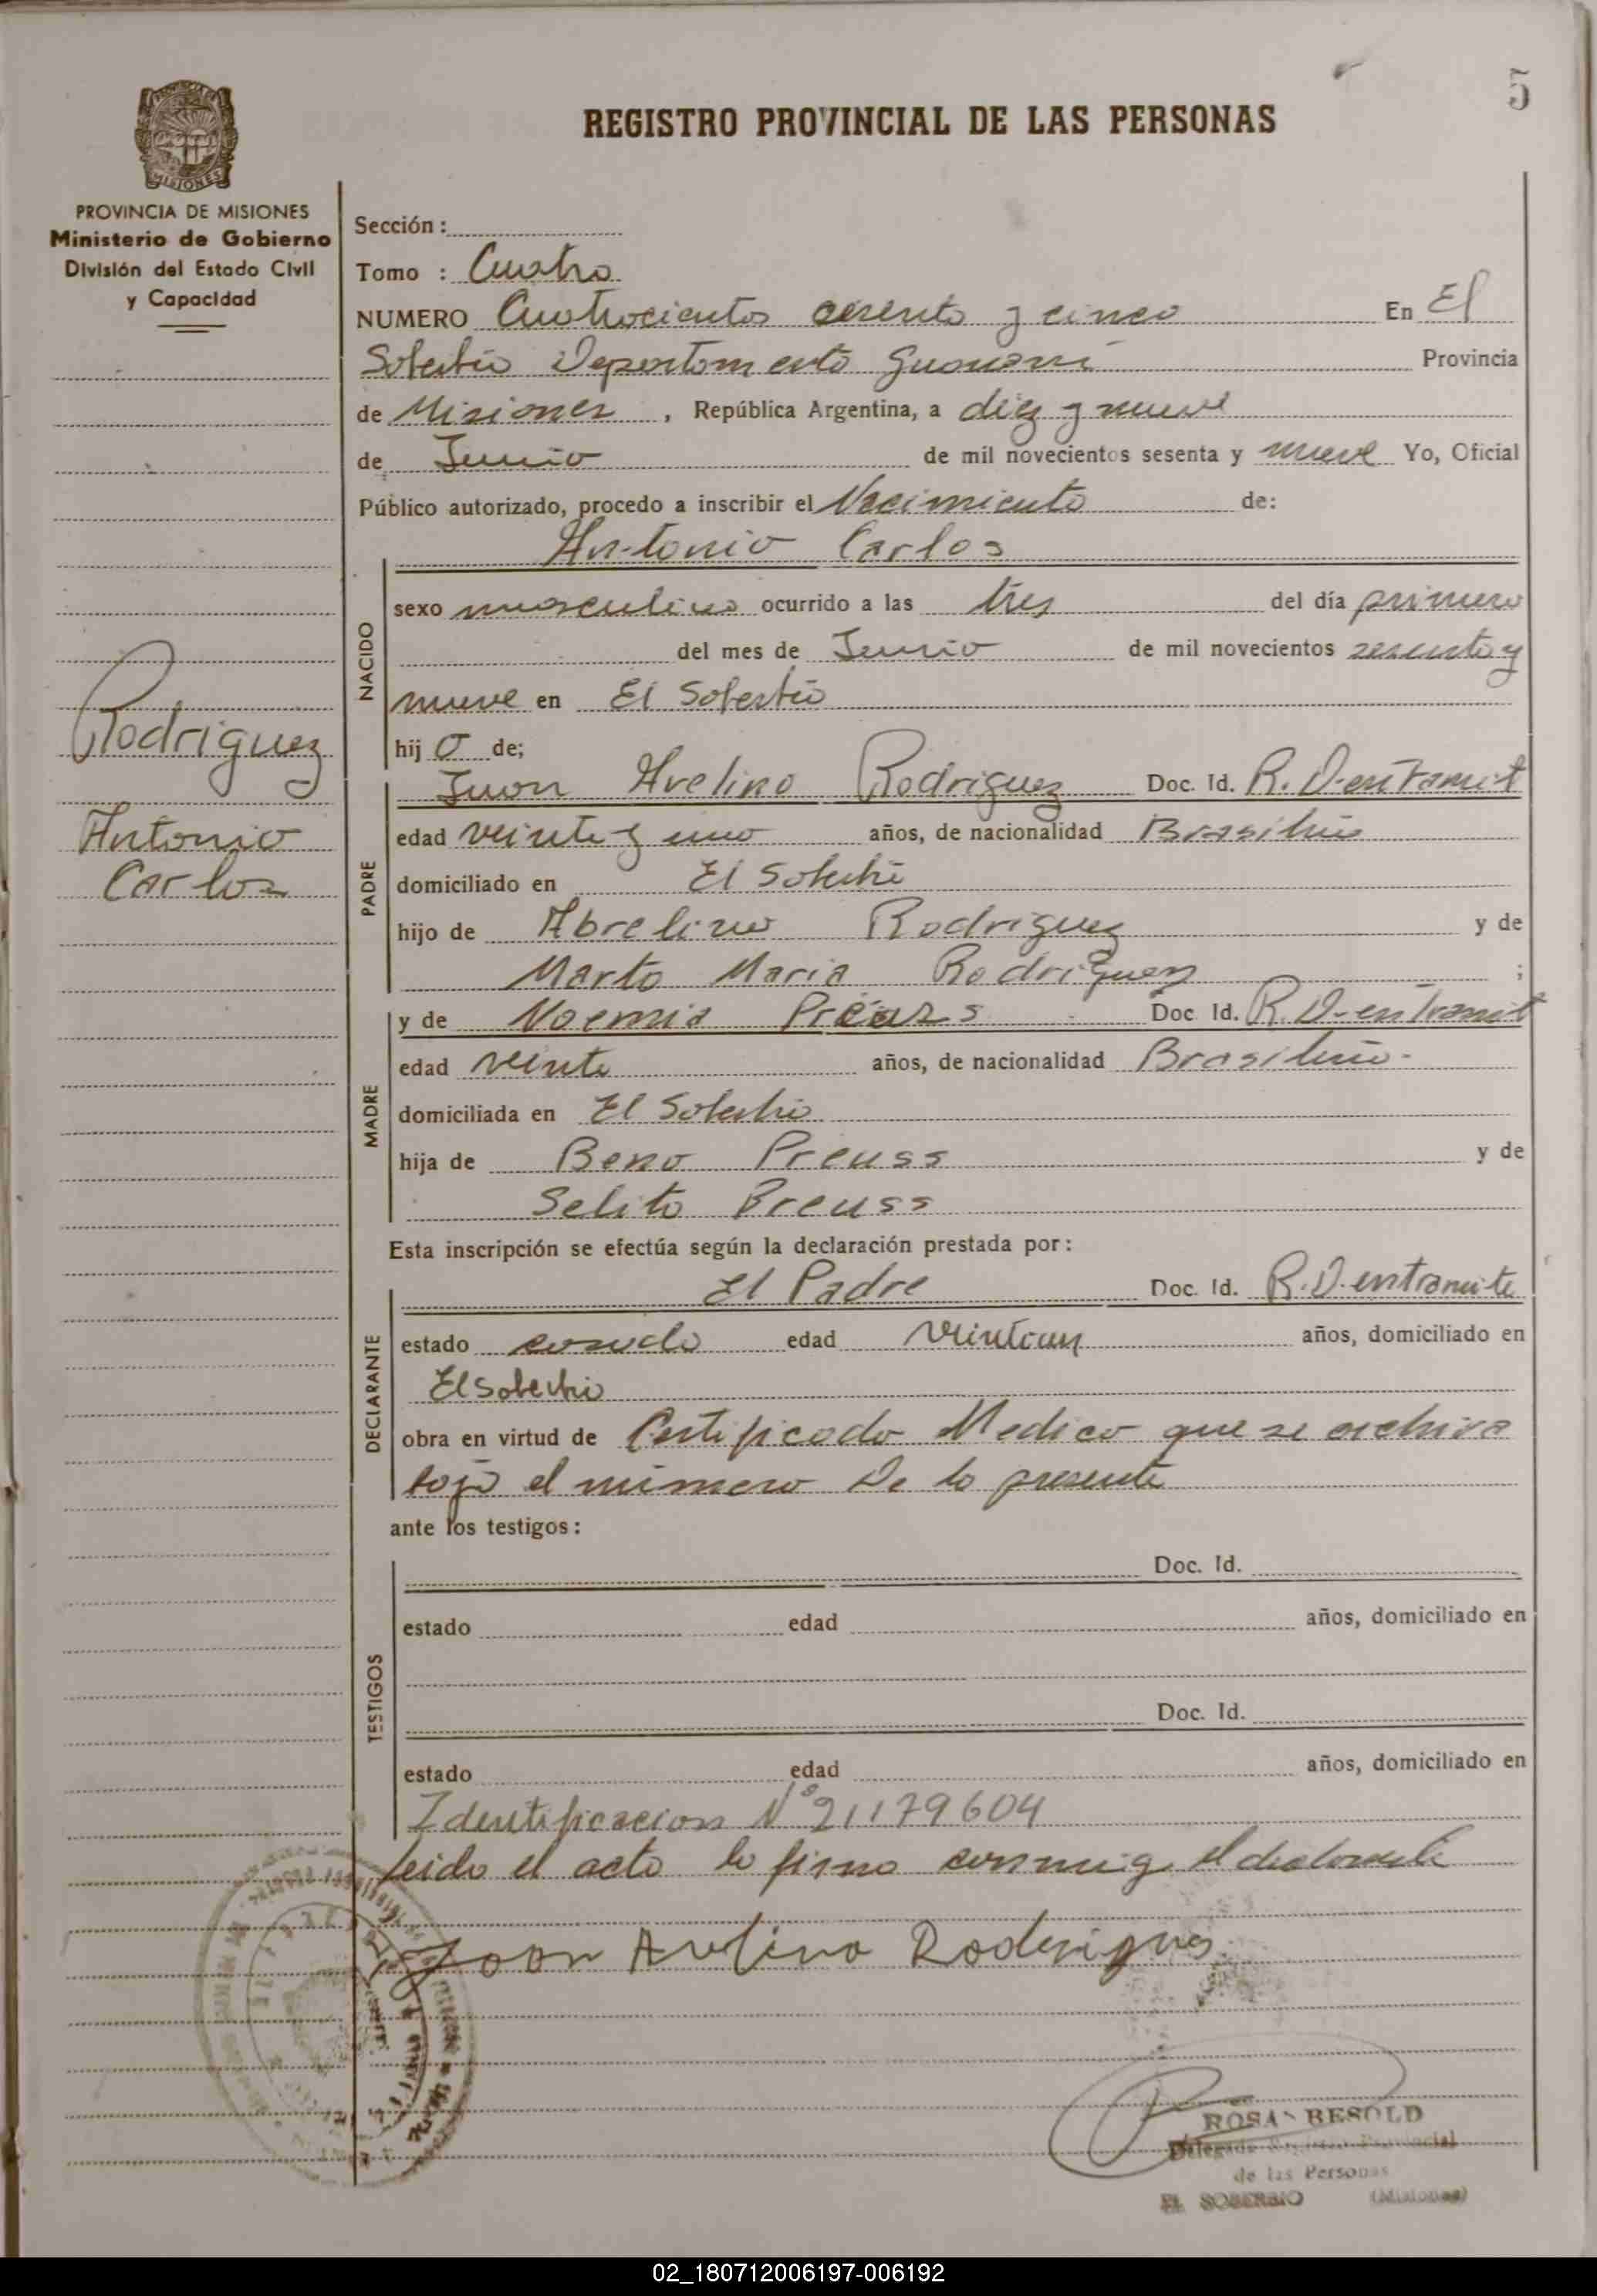 5
REGISTRO PROVINCIAL DE LAS PERSONAS
MISIONES
PROVINCIA DE MISIONES
Ministerio de Gobierno
División del Estado Civil
y Capacidad
Sección:
Tomo : Cuatro
NUMERO Cuatrocientos sesenta y cinco En El
Soberbio Departamento Guarani Provincia
de Misiones, República Argentina, a diez y nueve
de Junio de mil novecientos sesenta y nueve Yo, Oficial
Público autorizado, procedo a inscribir el Nacimiento de:
Antonio Carlos
NACIDO
sexo masculino ocurrido a las tres del día primero
del mes de Junio de mil novecientos sesenta y
nueve en El Soberbio
hij o de;
Rodriguez
Antonio
Carlos
PADRE
Juan Avelino Rodriguez Doc. Id. R. D-en Tramit
edad veinte y uno años, de nacionalidad Brasileño
domiciliado en El Soberbio
hijo de Abrelino Rodriguez y de
Marta Maria Rodriguez ;
MADRE
y de Noemia Doc. Id. R. D-en tramit
edad veinte años, de nacionalidad Brasileño-
domiciliada en El Soberbio
hija de Beno Preuss y de
Selita Preuss
Esta inscripción se efectúa según la declaración prestada por:
DECLARANTE
El Padre Doc. Id. R.D. entramite
estado casado edad años, domiciliado en
El soberbio
obra en virtud de Certificado Medico que se archiva
bajo el numero De la presente
ante los testigos:
TESTIGOS
Doc. Id.
estado edad años, domiciliado en
Doc. Id.
estado edad años, domiciliado en
Identificacion N° 21179604
leido el acta lo firma conmigo el declarante
Joan Avelino Roderigues
ROSA BESOLD
Delegada Registro Provincial
de las Personas
EL SOBERBIO (Misiones)
02_180712006197-006192